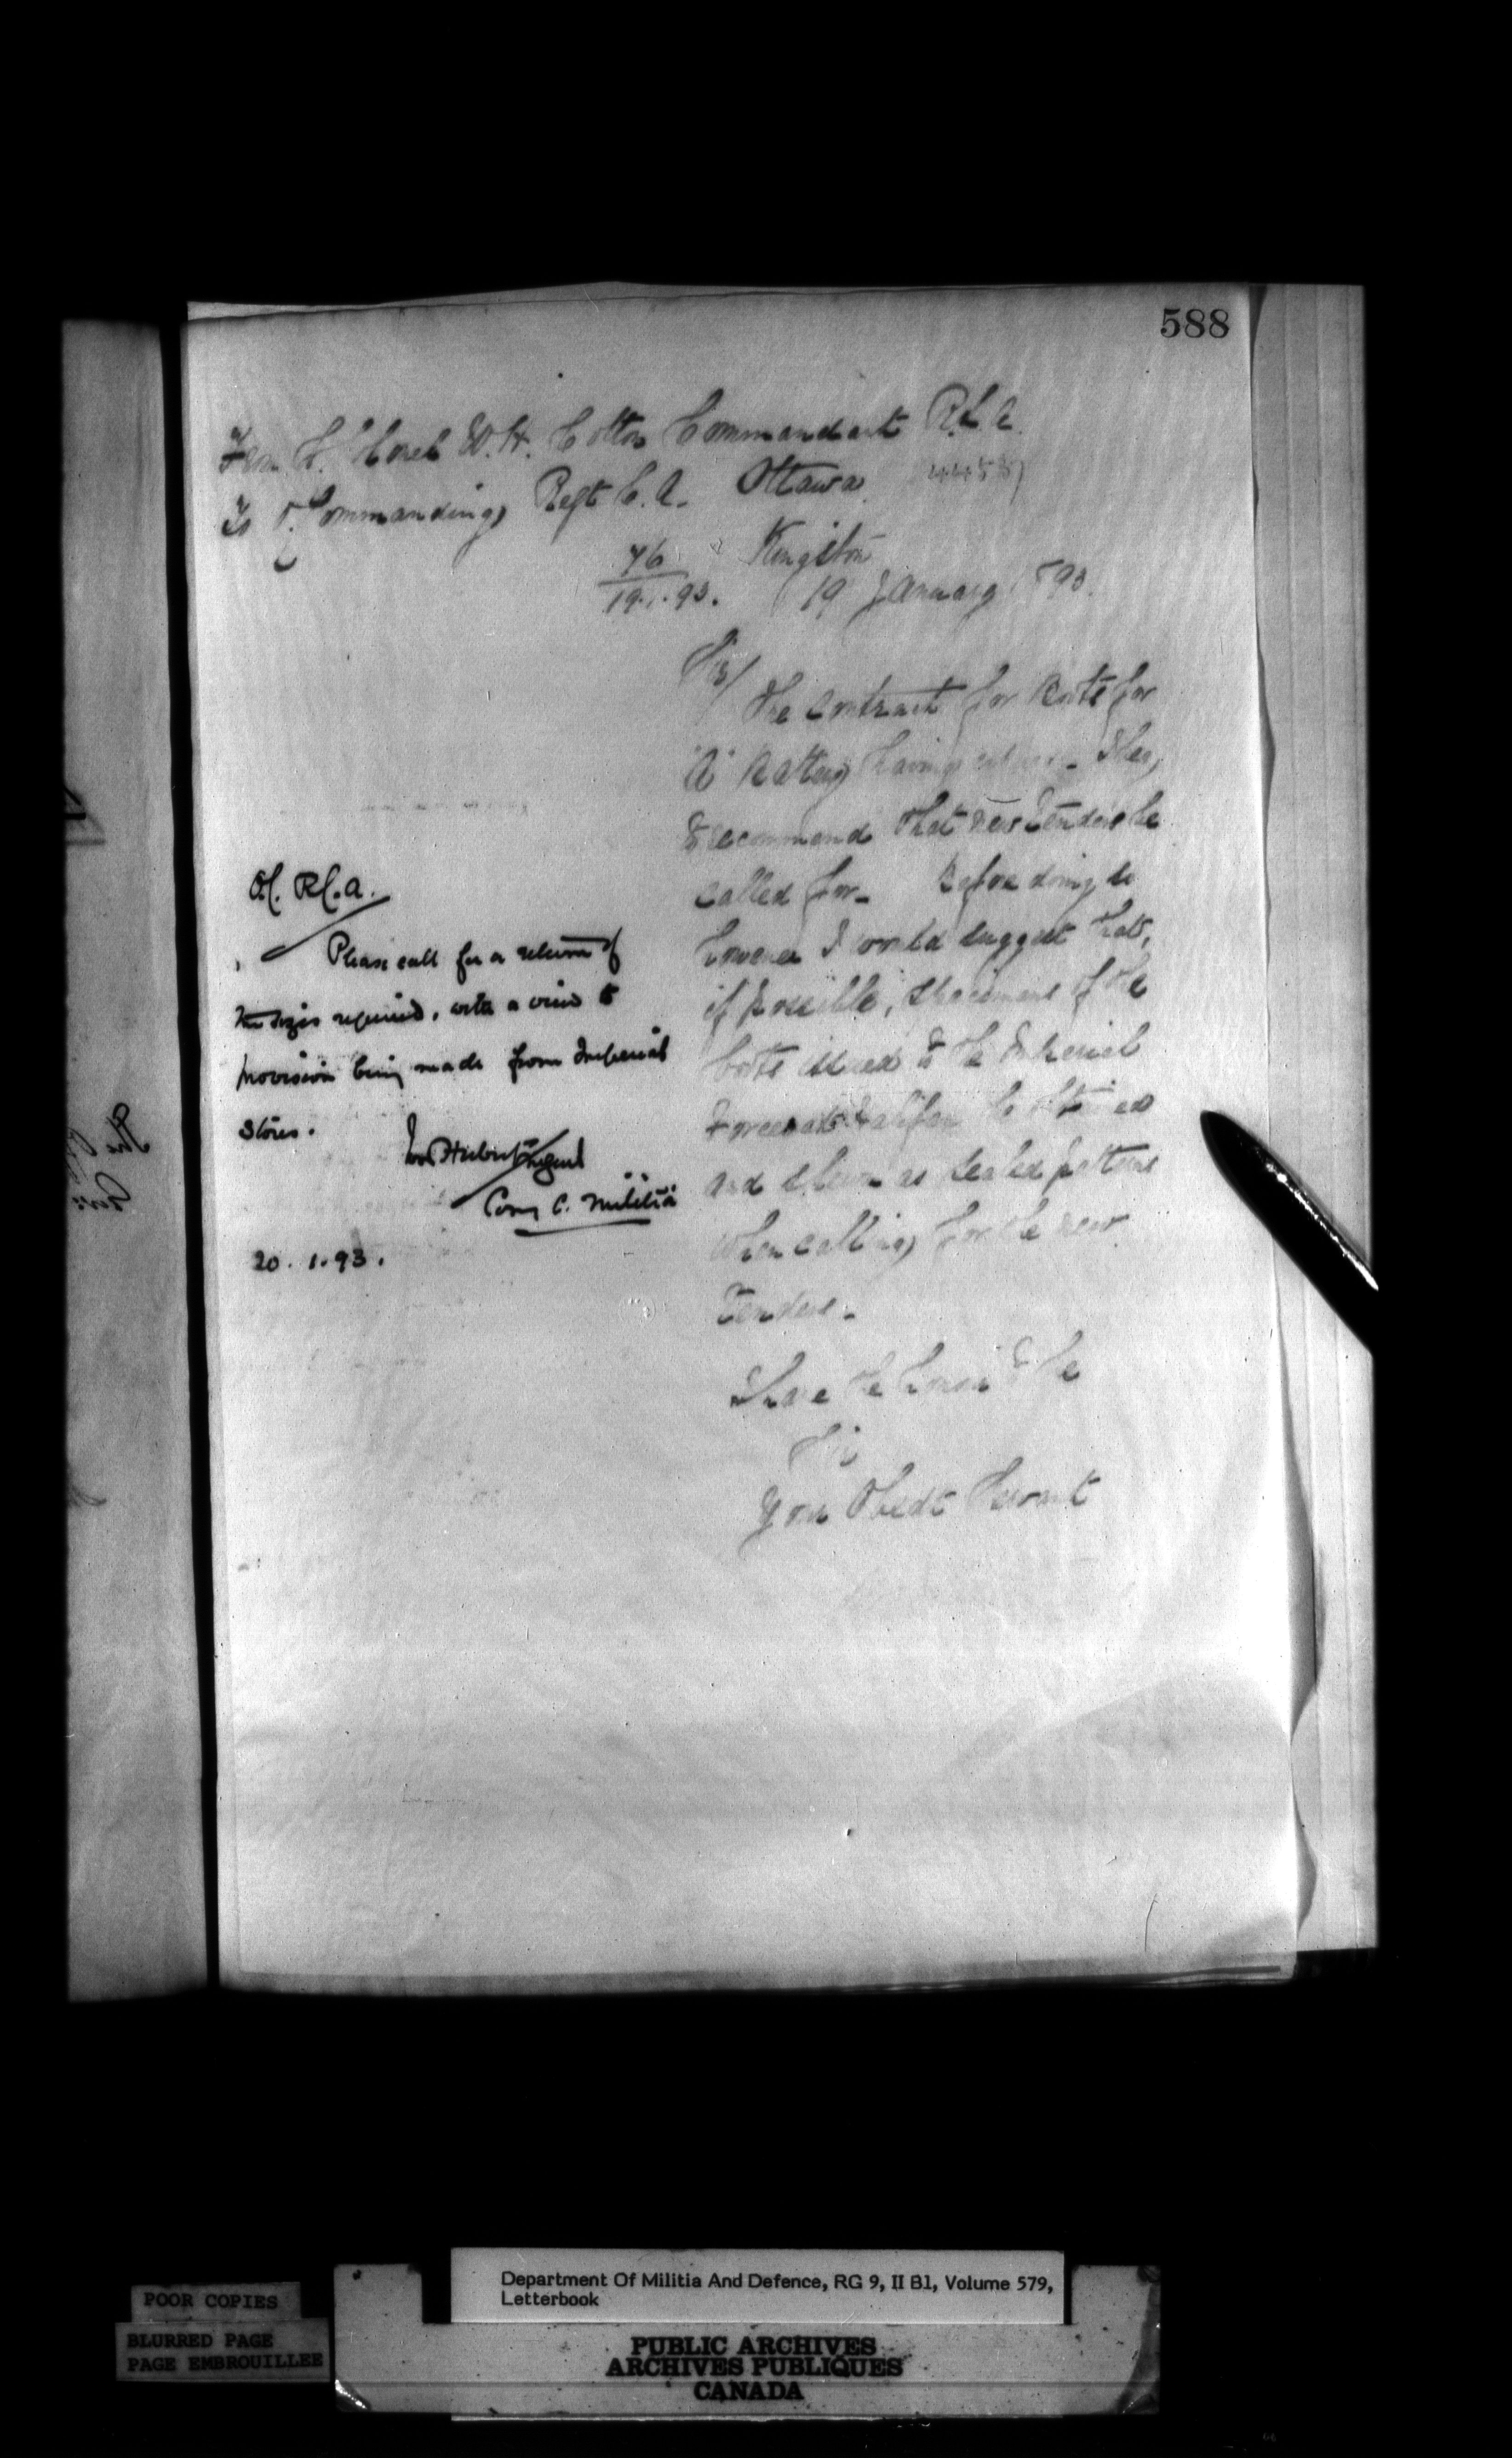 588
From Lt. Colonel W.H. Cotton Commandant R.S.A.
To Commanding Regt C.A. Ottawa 44537
76 Kingston
19.1.93. 19 January 1893.
Sir/
The contract for Boots for
"A" Battery having I beg
to recommend that new tenders be
called for_ Before doing so
however I would suggest that,
if possible, specimens of the
boots issued to the Imperial
Forces at Halifax be obtained
and shewn as sealed patterns
when calling for the new
Tenders_
I have the honor to be
Sir
Your Obedt Servant
OC. RC.A.
Please call for a return of
the sizes required, with a view to
provision being made from Imperial
Stores.
Ivor Herbert
Comg C. Militia
20.1.93.
Department Of Militia And Defence, RG 9, II B1, Volume 579,
Letterbook
POOR COPIES
BLURRED PAGE
PAGE EMBROUILLEE
PUBLIC ARCHIVES
ARCHIVES PUBLIQUES
CANADA